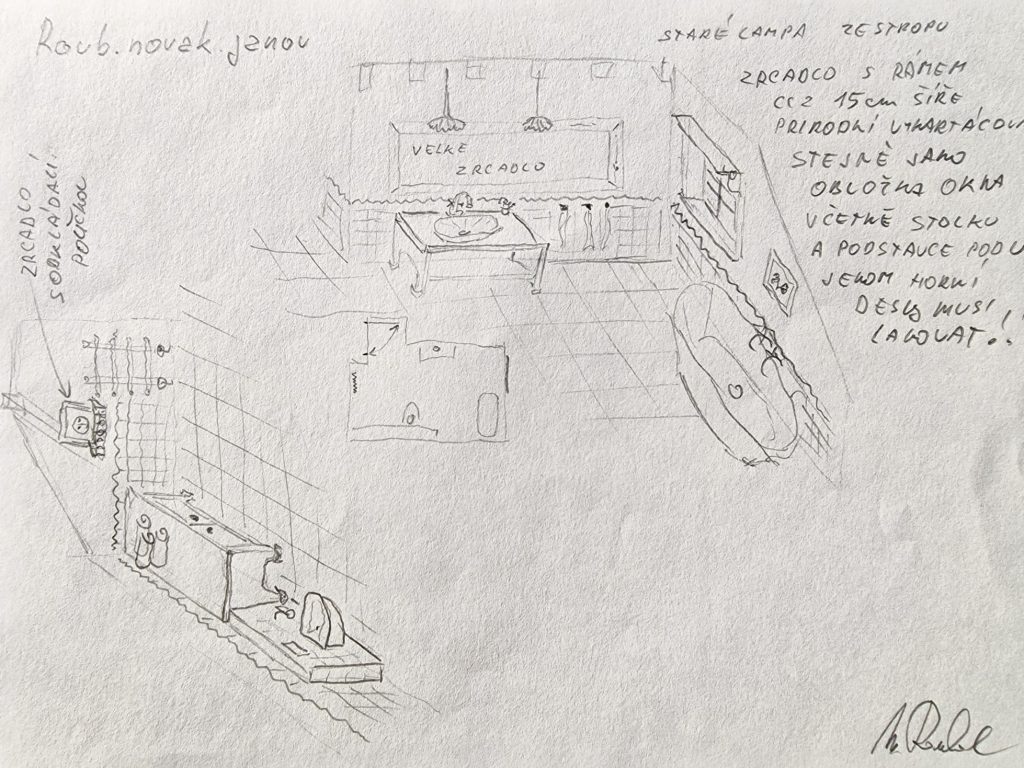 Roub.novak.janov
STARÉ LAMPA ZE STROPU
ZRCADLO S RÁMEM
CCZ 15cm ŠÍŘE
PŘIRODNÍ VYKARTÁČOV
STEJNĚ JAKO
OBLOŽKA OKNA
VČETNĚ STOLKU
A PODSTAVCE POD U
JENOM HORNÍ
DESKY MUSÍ
LAKOVAT!!
VELKÉ
ZRCADLO
ZRCADLO